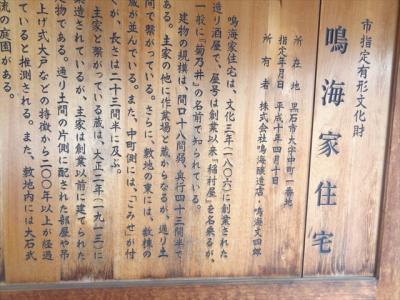 市指定有形文化財
鳴海家住宅
所在地　黒石市大字中町一番地
指定年月日　平成十年四月十日
所有者　株式会社鳴海醸造店・鳴海文四郎
鳴海家住宅は、文化三年(一八〇六)に創業された
造り酒屋で、屋号は創業以来『稲村屋』を名乗るが、
一般に『菊乃井』の名前で知られている。
建物の規模は、間口十八間弱、奥行四十三間半で
ある。主家の他に作業場と蔵からなるが、通り土
間で繋がっている。さらに、敷地の東には、数棟の
蔵が並んでいる。また、中町側には、「こみせ」が付
くが、長さは二十三間半に及ぶ。
主家と繋がっている蔵は、大正二年(一九一三)に
造されているが、主家は創業以前に建てられた
物である。通り土間の片側に配された部屋や吊
上げ式大戸などの特徴から二〇〇年以上が経過
ていると推測される。また、敷地内には大石武
流の庭園がある。